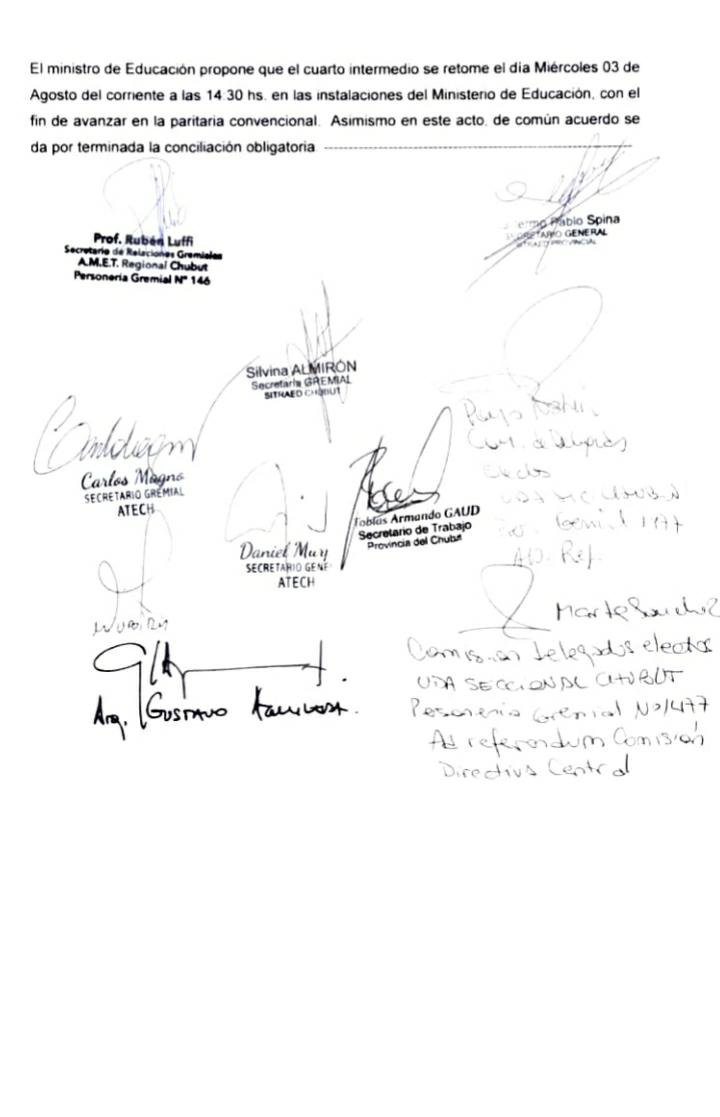 El ministro de Educación propone que el cuarto intermedio se retome el día Miércoles 03 de
Agosto del corriente a las 14:30 hs. en las instalaciones del Ministerio de Educación, con el
fin de avanzar en la paritaria convencional. Asimismo en este acto, de común acuerdo se
da por terminada la conciliación obligatoria
Prof. Rubén Luffi
Secretario de Relaciones Gremiales
A.M.E.T. Regional Chubut
Personería Gremial Nº 146
Pablo Spina
SECRETARIO GENERAL
SITRAED PROVINCIAL
Silvina ALMIRÓN
Secretaria GREMIAL
SITRAED CHUBUT
Carlos Magno
SECRETARIO GREMIAL
ATECH
Daniel Mur
SECRETARIO GENE
ATECH
Tobías Armando GAUD
Secretario de Trabajo
Provincia del Chubut
Com. de Delegados
electos
Ad. Ref.
Arq. Gustavo
Marta Sanchez
Comision delegados electos
UDA SECCIONAL CHUBUT
Personeria Gremial Nº1477
Ad referendum Comisión
Directiva Central